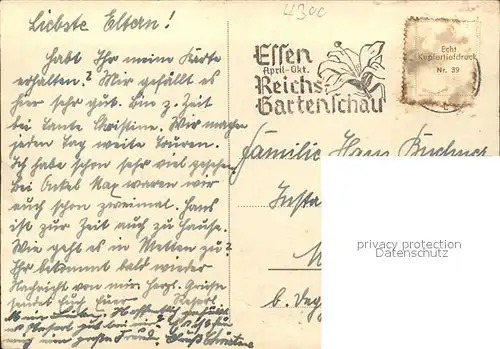 Liebste Eltern!
43cc
Habt Ihr meine Karte
erhalten? Mir gefällt es
hier sehr gut. Bin z. Zeit
bei Tante Christine. Wir machen
jeden Tag weite Touren.
Ich habe schon sehr viel gesehen.
Bei Onkel Max waren wir
auch schon zweimal. Hans
ist zur Zeit auch zu Hause.
Wie geht es in Metten zu?
Ihr bekommt bald wieder
Nachricht von mir. Herzl. Grüße
sendet Euch Euer Reserl
Essen
April-Okt.
Reichs-
Gartenschau
Echt
Kupfertiefdruck
Nr. 39
Familie Hans
Insta
M
b. Deg
privacy protection
Datenschutz